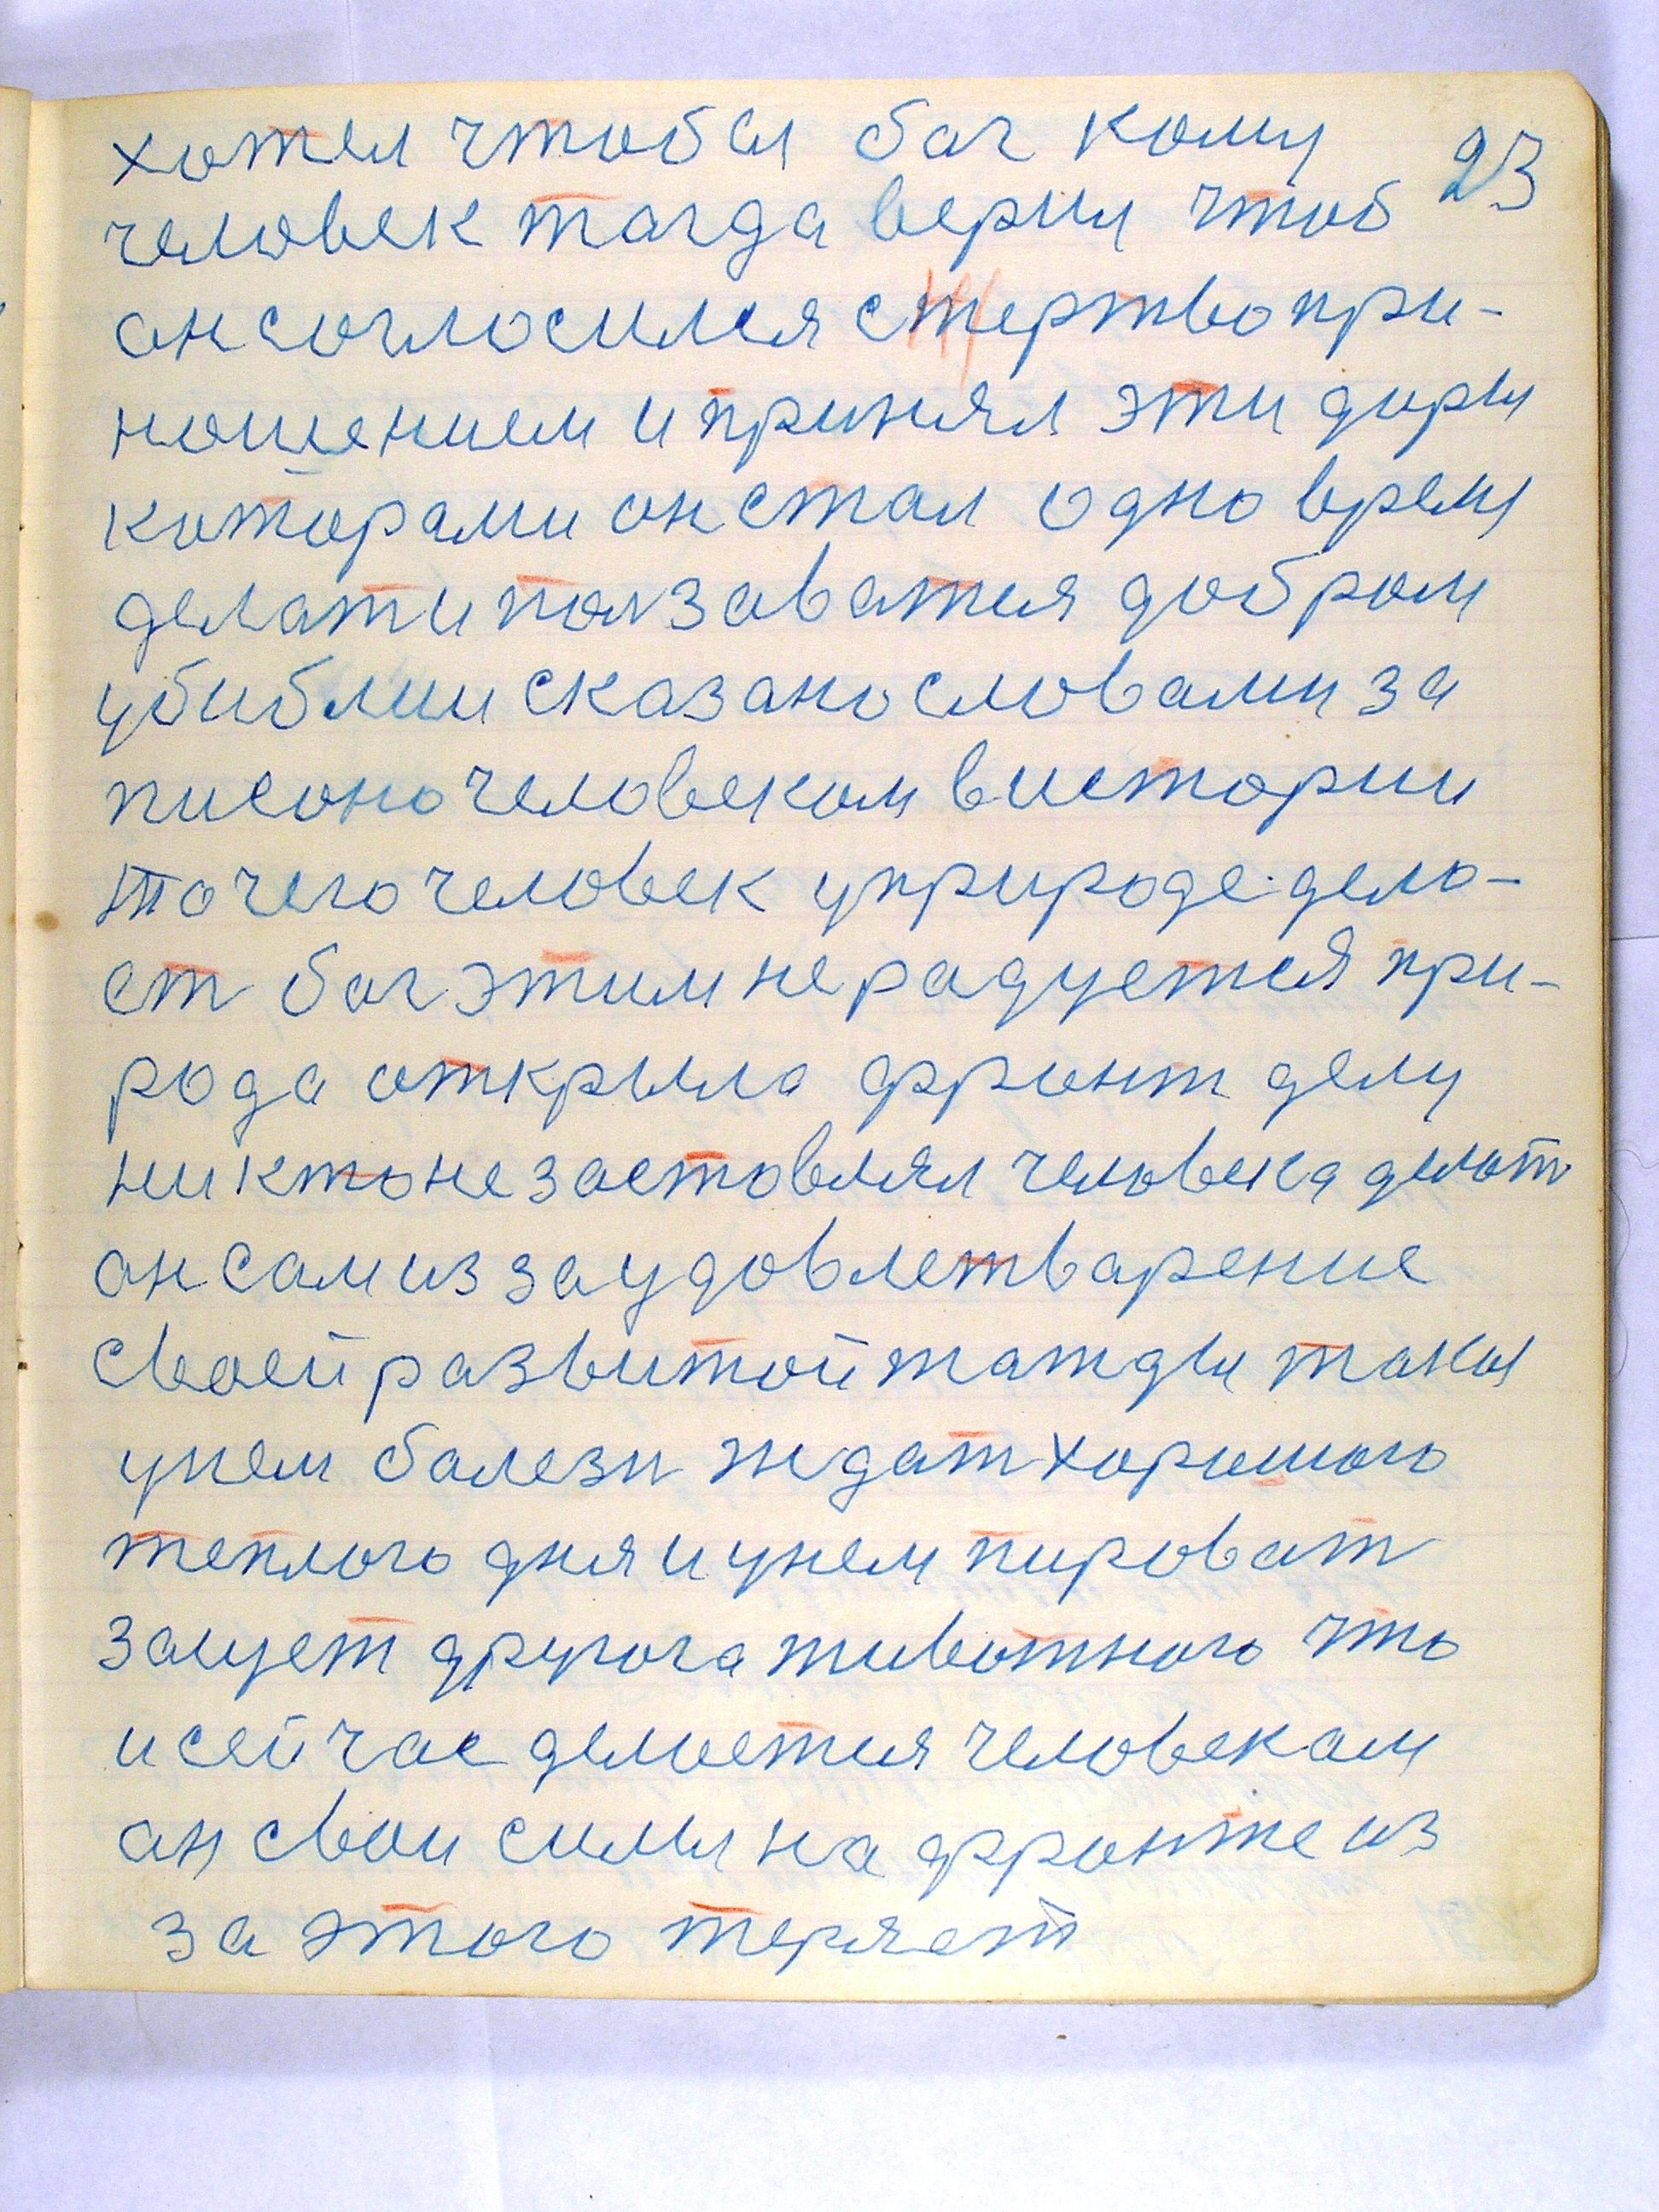 хотел чтобы бог кому 23
человек тагда верил чтоб
он согласился с жертвопри-
ношением и принял эти дары
которами он стал одно врему
делат и ползаватся добром
у библии сказано словами за
писоно человеком в истории
то чего человек у природе дела-
ет бог этим не радуется при-
рода открыла фронт делу
никто не заставлял человека делат
он сам из за удовлетварение
своей развитой жажды такы
унем балезн ждат хорошого
теплого дня и унем пироват
защет другога животного что
и сейчас делается человекам
он свои силы на фронте из
за этого теряет